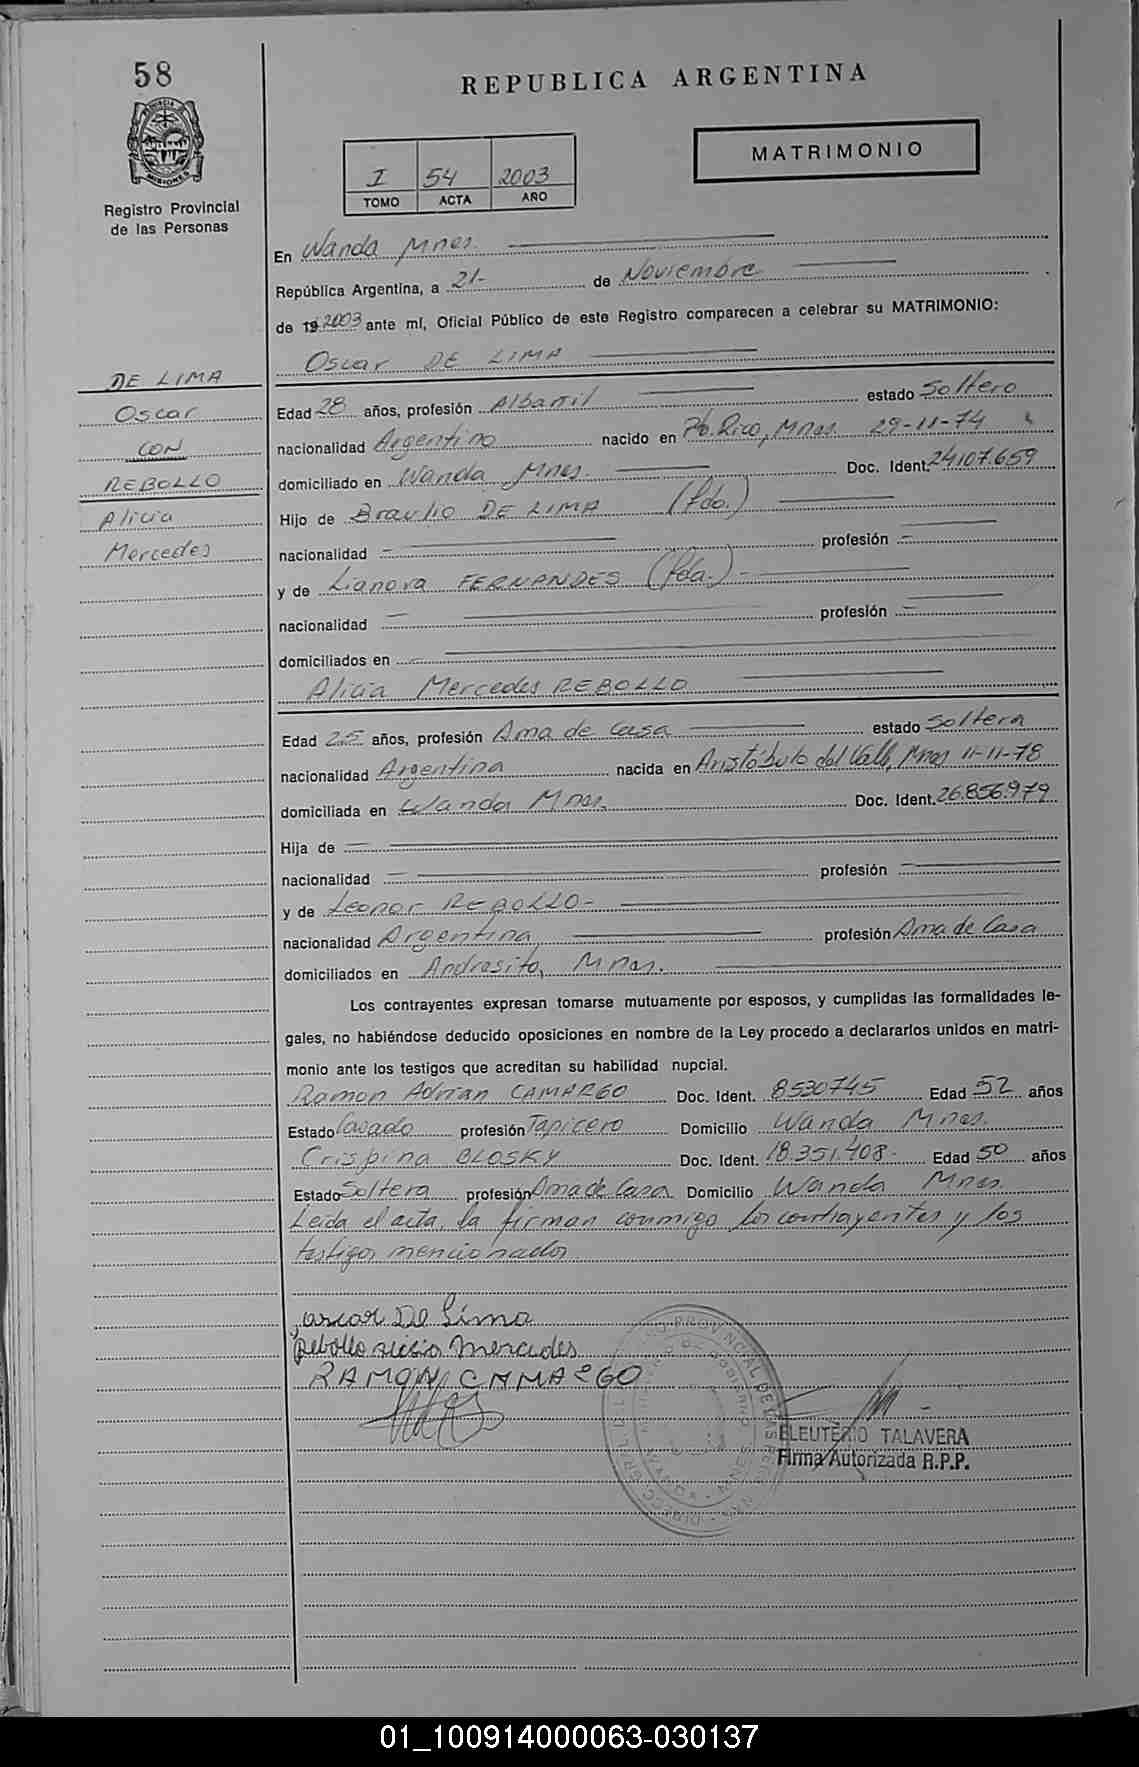 58
REPUBLICA ARGENTINA
MATRIMONIO
I 54 2003
TOMO ACTA AÑO
Registro Provincial
de las Personas
En Wanda Mnes.
República Argentina, a 21- de Noviembre
de 19 2003 ante mí, Oficial Público de este Registro comparecen a celebrar su MATRIMONIO:
Oscar DE LIMA
DE LIMA
Oscar
CON
REBOLLO
Alicia
Mercedes
Edad 28 años, profesión Albañil estado Soltero
nacionalidad Argentino nacido en Pto. Rico, Mnes. 29-11-74
domiciliado en Wanda Mnes. Doc. Ident. 24107.659
Hijo de Braulio DE LIMA (fdo.)
nacionalidad — profesión —
y de Lianora FERNANDES (fda.) -
nacionalidad — profesión —
domiciliados en —
Alicia Mercedes REBOLLO
Edad 25 años, profesión Ama de Casa estado Soltera
nacionalidad Argentina nacida en Aristóbulo del Valle, Mnes 11-11-78
domiciliada en Wanda Mnes. Doc. Ident. 26.856.979
Hija de —
nacionalidad — profesión —
y de Leonor REBOLLO-
nacionalidad Argentina profesión Ama de Casa
domiciliados en Andresito, Mnes.
Los contrayentes expresan tomarse mutuamente por esposos, y cumplidas las formalidades le-
gales, no habiéndose deducido oposiciones en nombre de la Ley procedo a declararlos unidos en matri-
monio ante los testigos que acreditan su habilidad nupcial.
Ramon Adrian CAMARGO Doc. Ident. 8530745 Edad 52 años
Estado Casado profesión Tapicero Domicilio Wanda Mnes.
Crispina BLOSKY Doc. Ident. 18.351.408- Edad 50 años
Estado Soltera profesión Ama de Casa Domicilio Wanda Mnes.
Leída el acta, la firman conmigo los contrayentes y los
testigos mencionados
oscar De Lima
Rebollo alicia mercedes
RAMON CAMARGO
ELEUTERIO TALAVERA
Firma Autorizada R.P.P.
01_100914000063-030137